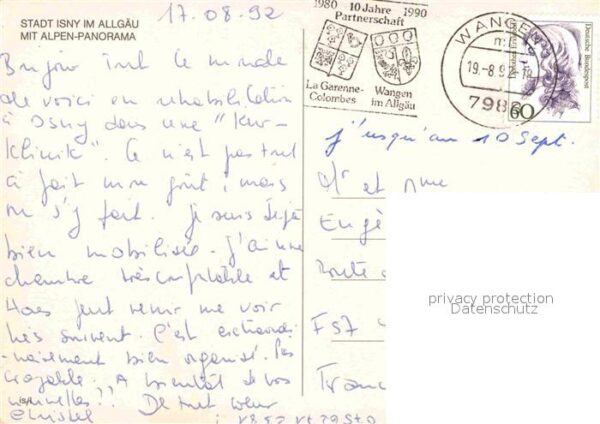 17.08.92
STADT ISNY IM ALLGÄU
MIT ALPEN-PANORAMA
1980 10 Jahre 1990
Partnerschaft
La Garenne-
Colombes
Wangen
im Allgäu
WANGEN
19.-8.92
7988
Deutsche Bundespost
60
Bonjour tout le monde
me voici en rehabilitation
à Isny dans une "Kur-
Klinik". Ce n'est pas tout
à fait mon goût, mais
on s'y fait. Je suis déjà
bien mobilisée. J'ai une
chambre très confortable et
peut venir me voir
très souvent. C'est extraordi
-nairement bien organisé. Pas
croyable. A bientôt de vos
nouvelles!! De tout coeur
Christel
jusqu'au 10 Sept.
Mr et Mme
Eugè
Route
F57
Franc
privacy protection
Datenschutz